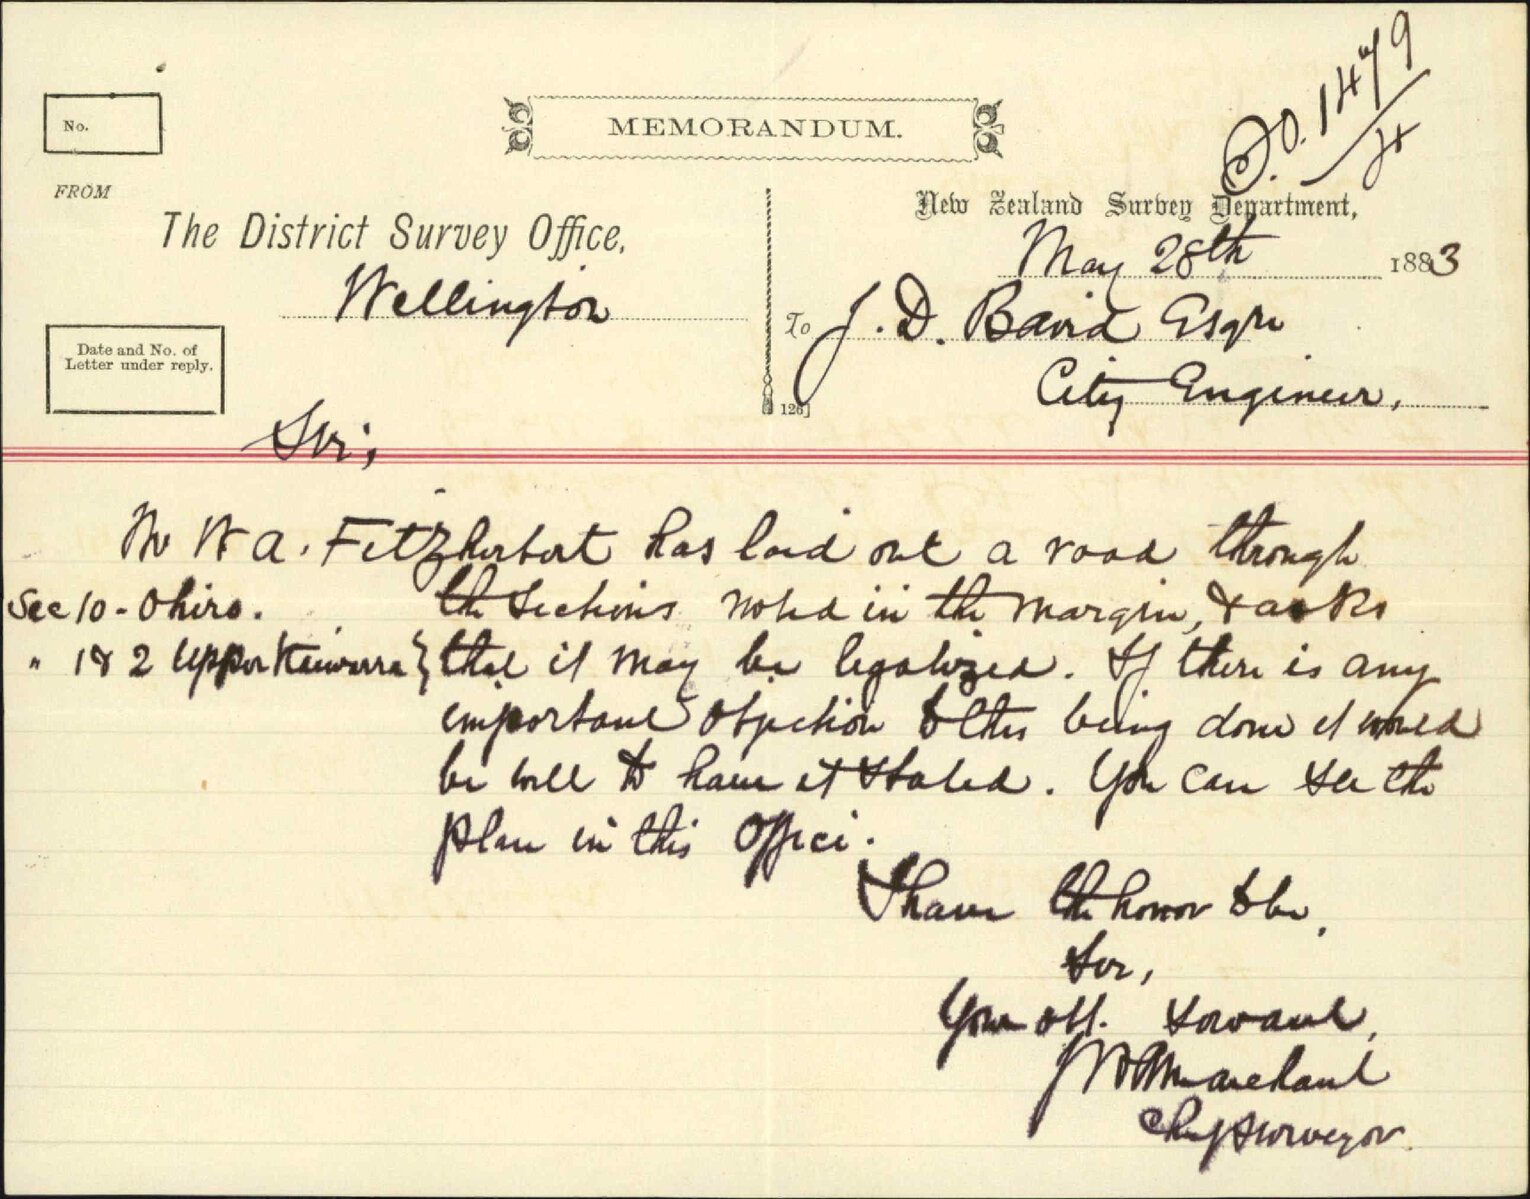 S.O. 1479/4
No.
MEMORANDUM.
FROM
The District Survey Office,
Wellington
New Zealand Survey Department,
May 28th 1883
To J. D. Baird Esqre
City Engineer,
Date and No. of
Letter under reply.
126]
Sir,
Mr W A. Fitzherbert has laid out a road through
Sec 10 - Ohiro. the Sections noted in the margin, & asks
" 1 & 2 Upper Kaiwarra } that it may be legalized. If there is any
important objection to this being done it would
be well to have it stated. You can see the
plan in this Office.
I have the honor to be,
Sir,
Your obt. Servant,
J W A Marchant
Chief Surveyor